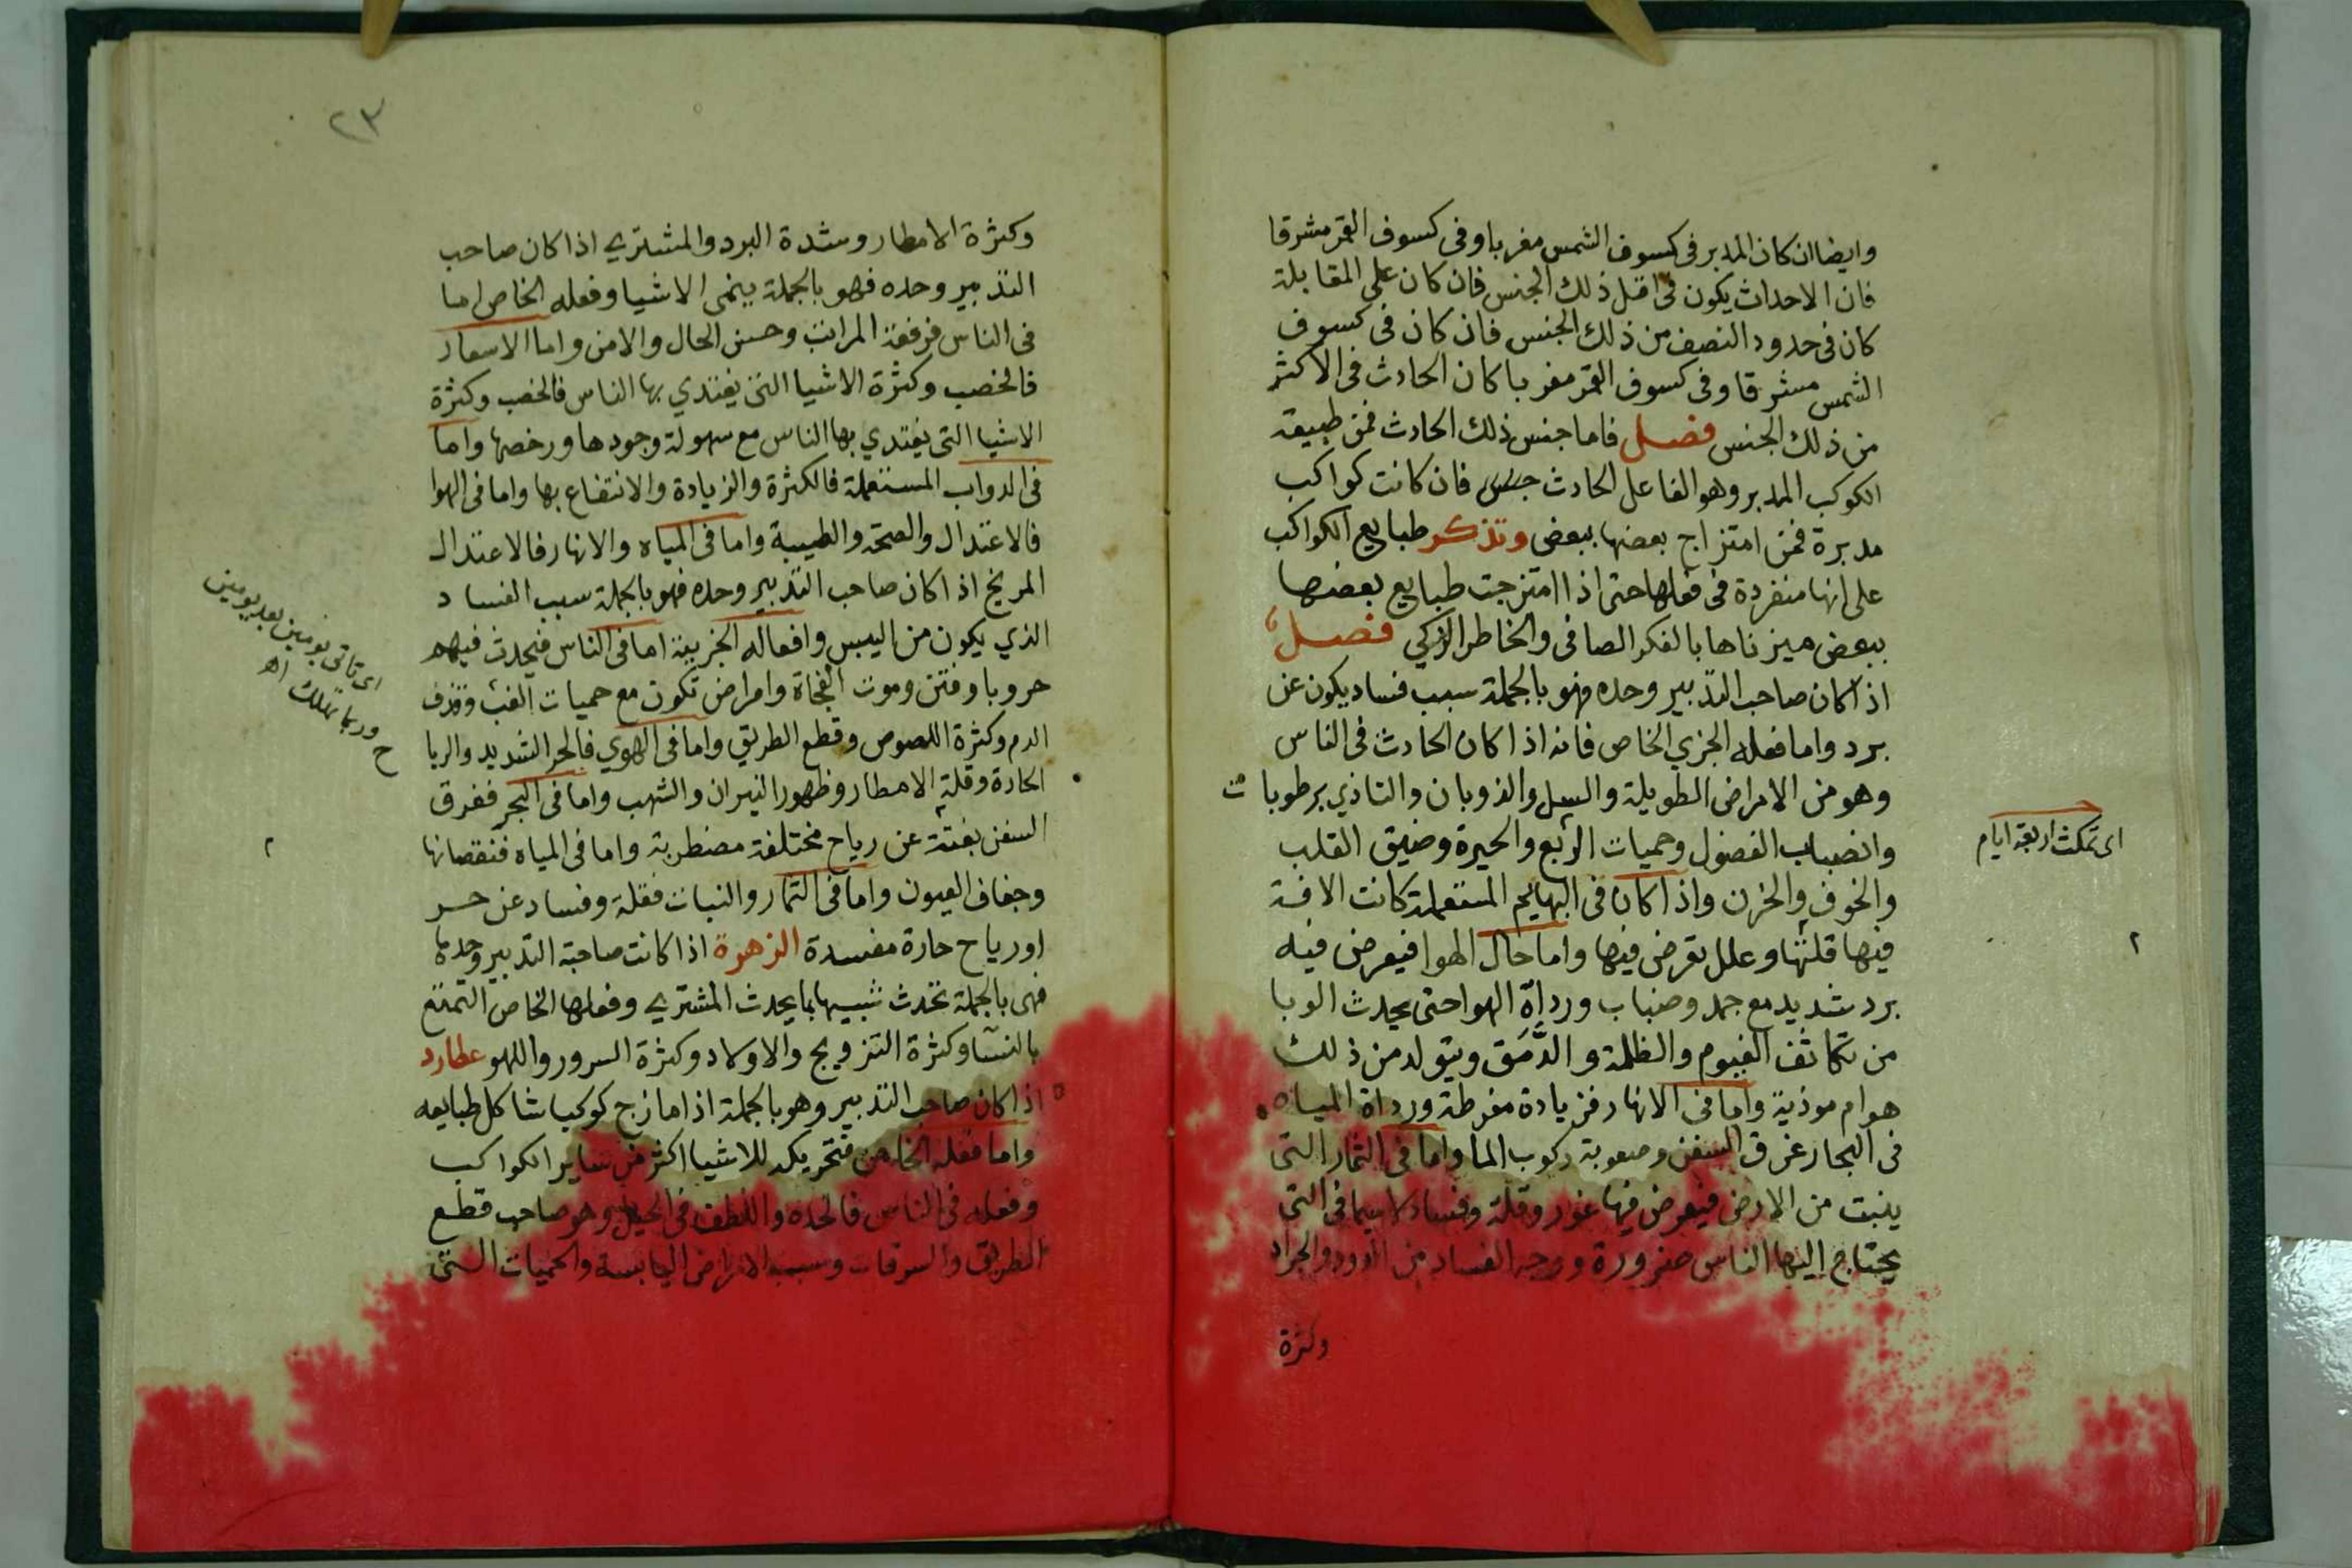 وايضا ان كان المدبر فى كسوف الشمس مغربا وفى كسوف القمر مشرقا
فان الاحداث يكون فى اقل ذلك الجنس فان كان على المقابلة
كان فى حدود النصف من ذلك الجنس فان كان فى كسوف
الشمس مشرقا وفى كسوف القمر مغربا كان الحادث فى الاكثر
من ذلك الجنس فصل فاما جنس ذلك الحادث فمن طبيعة
الكوكب المدبر وهو الفاعل الحادث فان كانت كواكب
مدبرة فمن امتزاج بعضها ببعض وتذكر طبايع الكواكب
على انها منفردة فى فعلها حتى اذا امتزجت طبايع بعضها
ببعض ميزناها بالفكر الصافى والخاطر الزكي فصل
اذا كان صاحب التدبير وحده فهو بالجملة سبب فساد يكون عن
برد واما فعله الجزي الخاص فانه اذا كان الحادث فى الناس
وهو من الامراض الطويلة والسل والذوبان والتاذي برطوبات
وانصباب الفضول وحميات الربع والحيرة وضيق القلب
والخوف والحزن واذا كان فى البهايم المستعملة كانت الافة
فيها قلتها وعلل تعرض فيها واما حال الهوا فيعرض فيه
برد شديد مع جمد وضباب ورداة الهوا حتى يحدث الوبا
من تكاثف الغيوم والظلمة والدَّمَق ويتولد من ذلك
هوام موذية واما فى الانهار فزيادة مفرطة ورداة المياه
فى البحار غرق السفن وصعوبة ركوب الما واما فى الثمار التى
ينبت من الارض فيعرض فيها غور وقلة وفساد لا سيما فى التى
يحتاج اليها الناس ضرورة ووجه الفساد من الدود والجراد
وكثرة
اى تمكث اربعة ايام
٢
٢٣
وكثرة الامطار وشدة البرد والمشتري اذا كان صاحب
التدبير وحده فهو بالجملة ينمى الاشيا وفعله الخاص اما
فى الناس فرفعة المراتب وحسن الحال والامن واما الاسعار
فالخصب وكثرة الاشيا التى يغتدي بها الناس فالخصب وكثرة
الاشيا التى يغتدي بها الناس مع سهولة وجودها ورخصها واما
فى الدواب المستعملة فالكثرة والزيادة والانتفاع بها واما فى الهوا
فالاعتدال والصحة والطيبة واما فى المياه والانهار فالاعتدال
المريخ اذا كان صاحب التدبير وحده فهو بالجملة سبب الفساد
الذي يكون من اليبس وافعاله الجزيية اما فى الناس فيحدث فيهم
حروبا وفتن وموت الفجاة وامراض تكون مع حميات الغب وقذف
الدم وكثرة اللصوص وقطع الطريق واما فى الهوي فالحر الشديد والريا
الحادة وقلة الامطار وظهور النيران والشهب واما فى البحر ففرق
السفن بغتة عن رياح مختلفة مضطربة واما فى المياه فنقصانها
وجفاف العيون واما فى الثمار والنبات فقلة وفساد عن حر
اورياح حارة مفسدة الزهرة اذا كانت صاحبة التدبير وحدها
فهى بالجملة تحدث شبيها بما يحدث المشتري وفعلها الخاص التمتع
بالنسا وكثرة التزويج والاولاد وكثرة السرور واللهو عطارد
اذا كان صاحب التدبير وهو بالجملة اذا مازج كوكبا شاكل طبايعه
واما فعله الخاص فتحريكه للاشيا اكثر من ساير الكواكب
وفعله فى الناس فالحده واللطف فى الحيل وهو صاحب قطع
الطريق والسرقات وسبب الامراض اليابسة والحميات التى
اى تاتى يومين بعد يومين
وربما تهلك اه
ح
٢